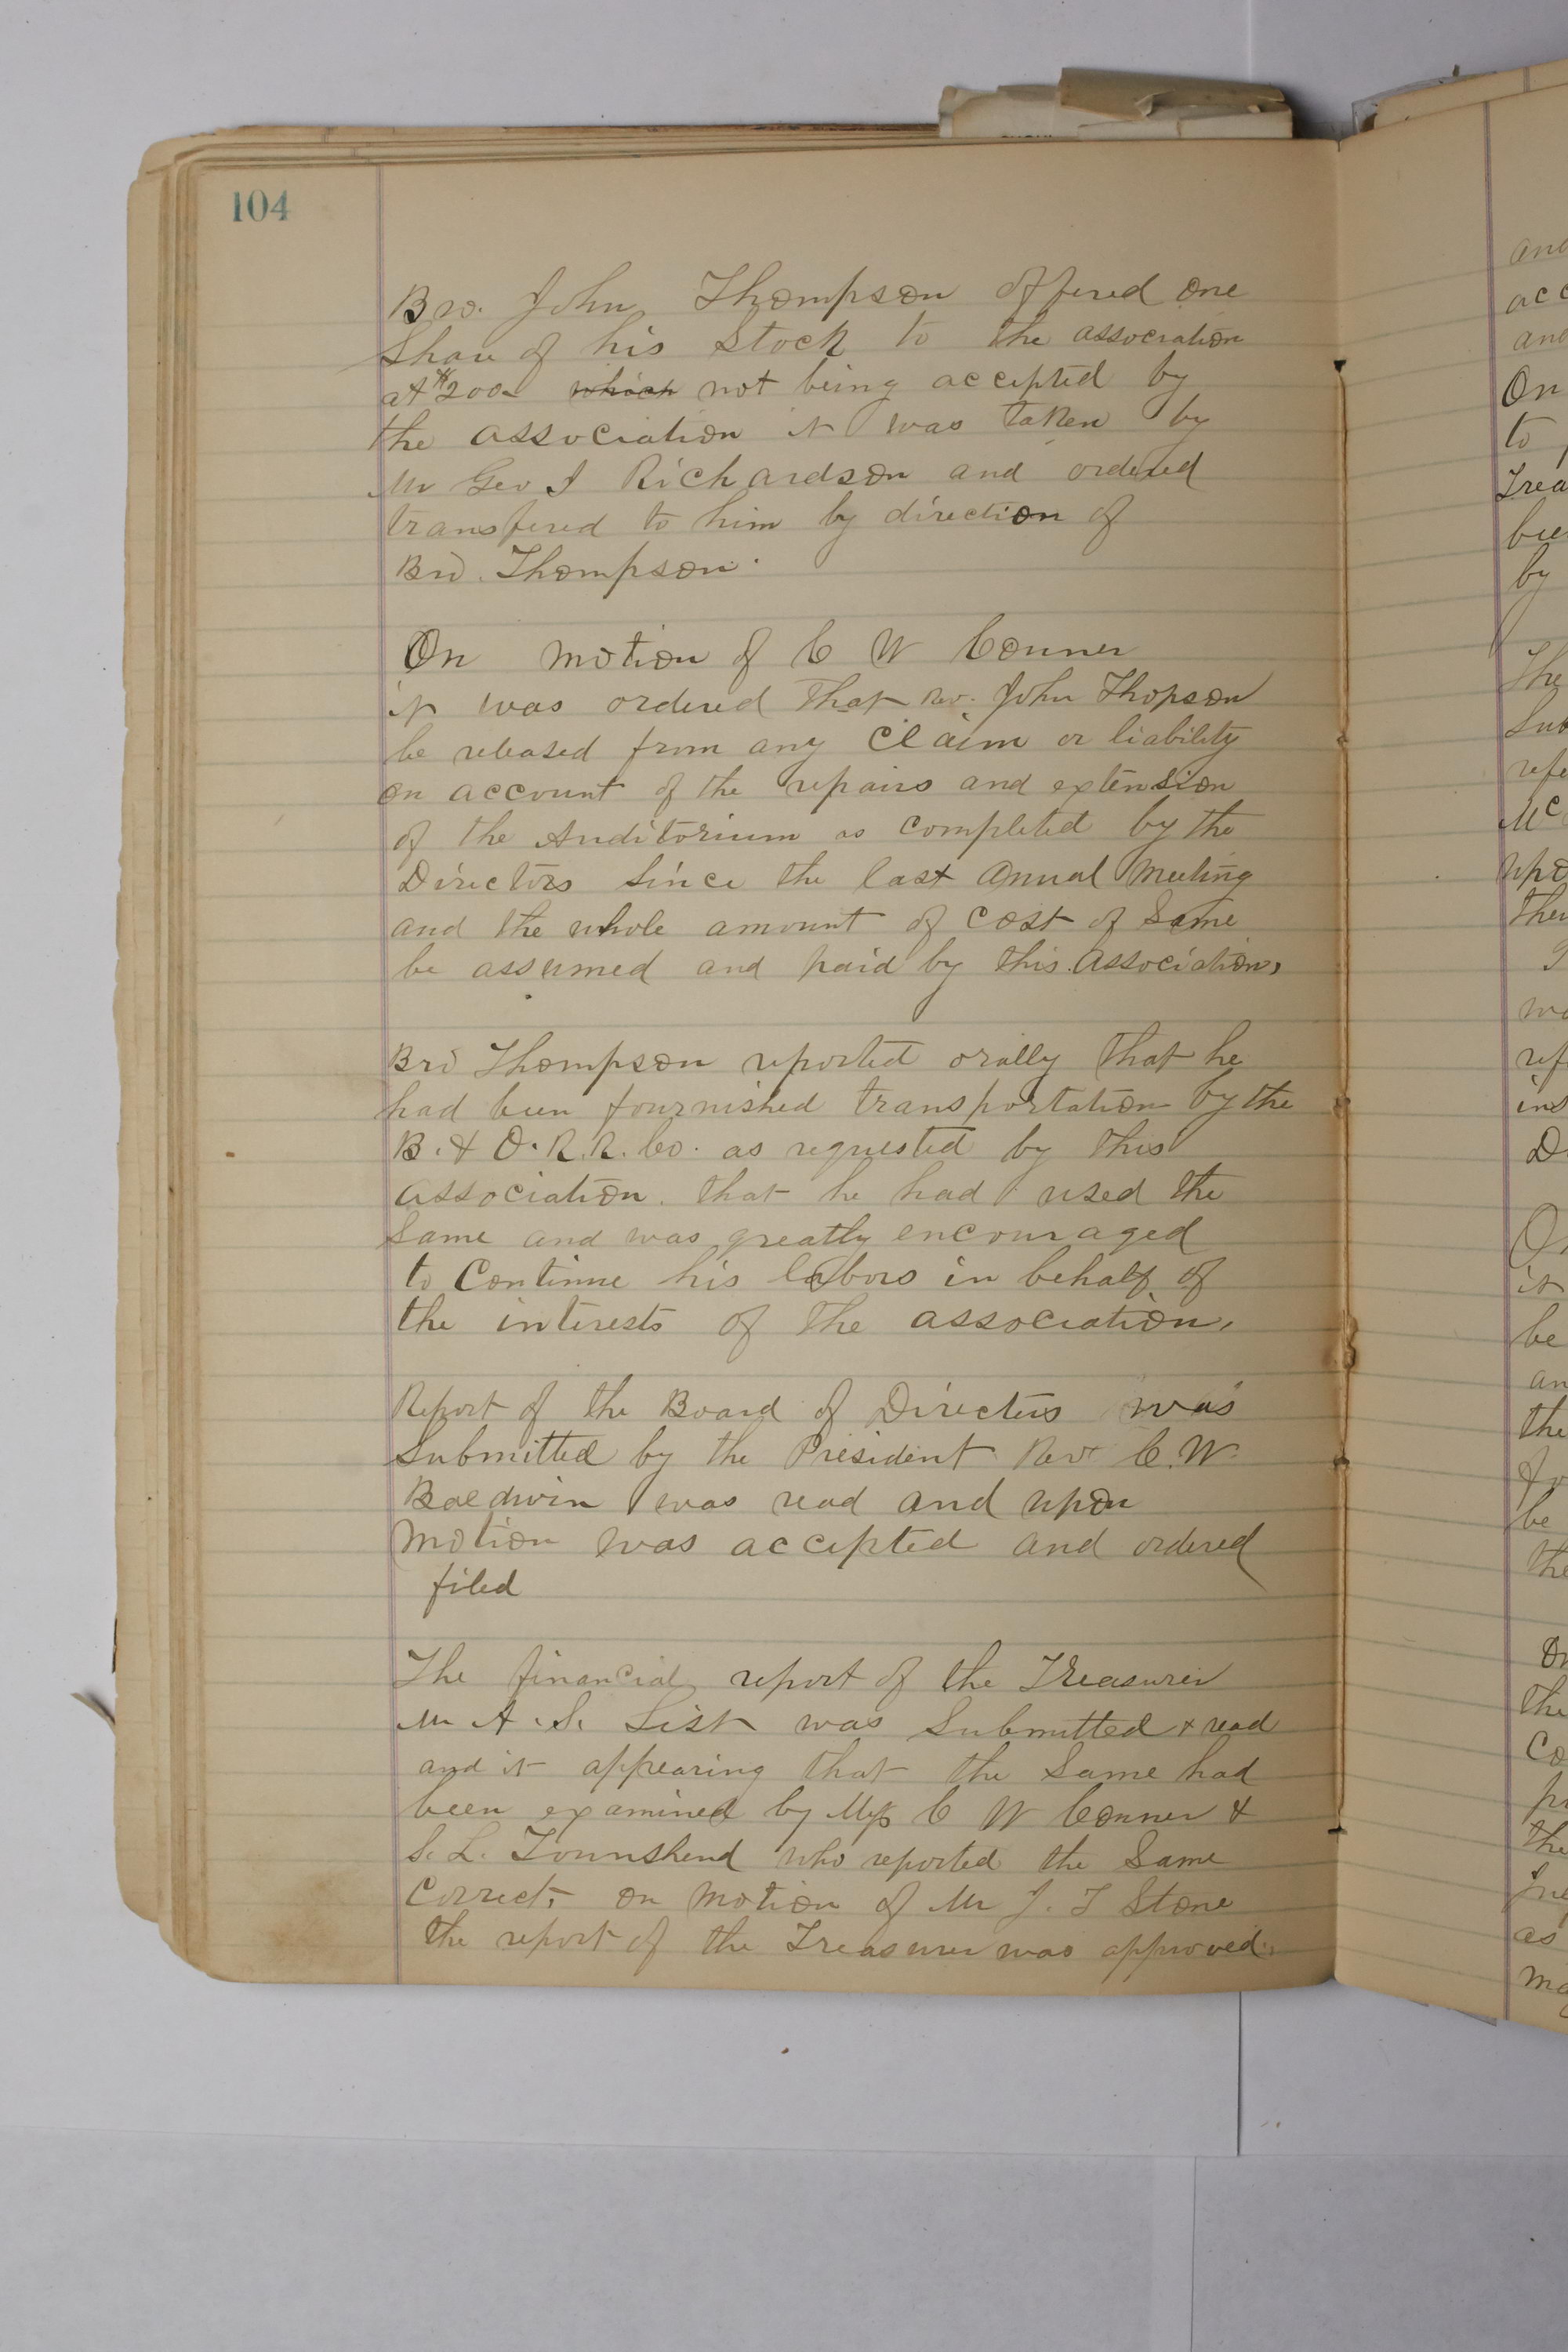 104
Bro. John Thompson offered one
Share of his Stock to the association
at $200- which not being accepted by
the association it was taken by
Mr Geo I Richardson and ordered
transfered to him by direction of
Bro. Thompson.
On motion of C W Conner
it was ordered that Rev. John Thopson
be released from any Claim or liability
on account of the repairs and extension
of the Auditorium as completed by the
Directors Since the last annual meeting
and the whole amount of cost of Same
be assumed and paid by this Association,
Bro Thompson reported orally that he
had been fournished transportation by the
B. & O. R. R. Co. as requested by this
Association. that he had used the
Same and was greatly encouraged
to Continue his labors in behalf of
the interests of the association,
Report of the Board of Directors was
Submitted by the President Rev C. W.
Baldwin was read and upon
motion was accepted and ordered
filed
The financial report of the Treasurer
Mr A. S. List was Submitted & read
and it appearing that the Same had
been examined by C W Conner &
S. L. Townshend who reported the Same
Correct, on motion of Mr J. T Stone
the report of the Treasurer was approved.
and
acc
and
On
to
Trea
by
The
Sub
refe
Mc
upo
ref
ins
it
be
an
the
be
the
On
the
Co
the
as